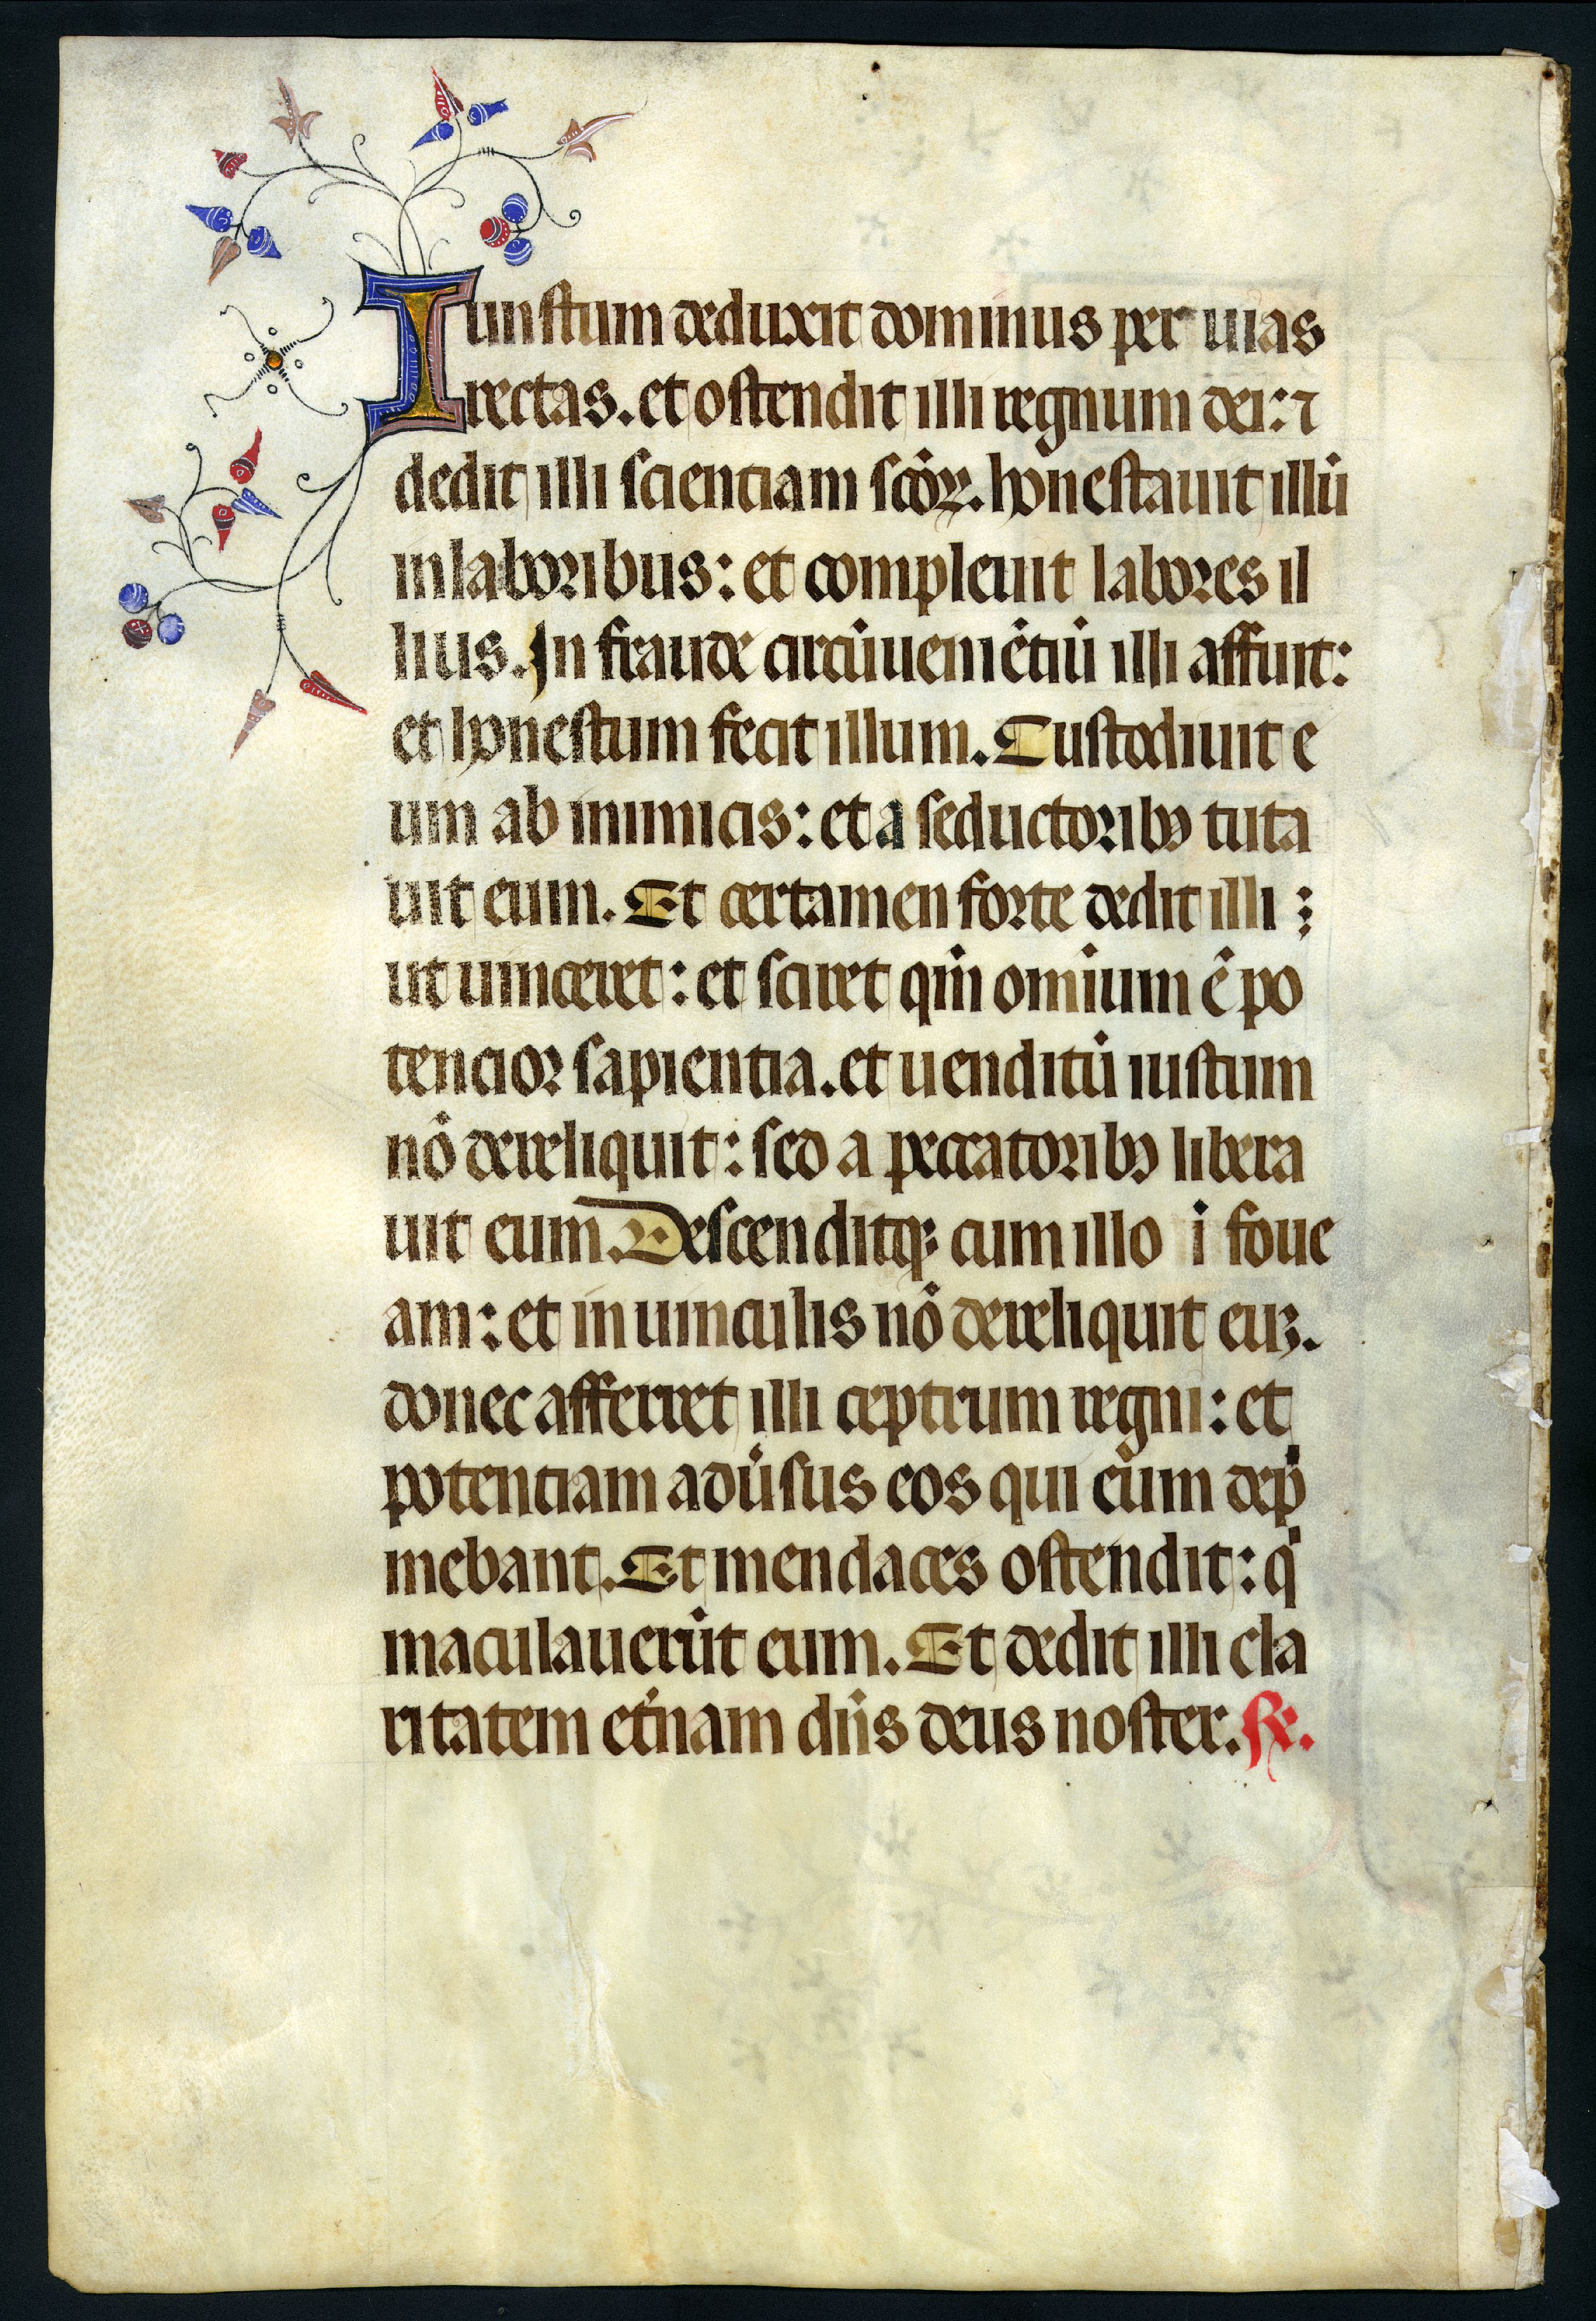 Iunstum deduxit dominus per uias
rectas. et ostendit illi regnum dei: ⁊
dedit illi scientiam scōꝝ. honestauit illū
in laboribus: et compleuit labores il
lius. In fraude circūueniētiū illi affuit:
et honestum fecit illum. Custodiuit e
um ab inimicis: et a seductoribꝫ tuta
uit eum. Et certamen forte dedit illi ;
ut uinceret: et sciret qm̄ omīum ē po
tencior sapientia. et uenditū iustum
nō dereliquit: sed a peccatoribꝫ libera
uit eum. Descenditqꝫ cum illo i foue
am: et in uinculis nō dereliquit euꝫ.
donec afferret illi ceptrum regni: et
potenciam adu̇sus eos qui eum dep̍
mebant. Et mendaces ostendit: q̍
maculauerūt eum. Et dedit illi cla
ritatem et̍nam dn̄s deus noster. ℟.